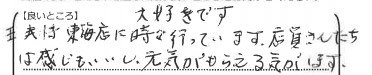 【良いところ】 大好きです
実は東海店に時々行っています。店員さんたち
は感じもいいし、元気がもらえる気がします。